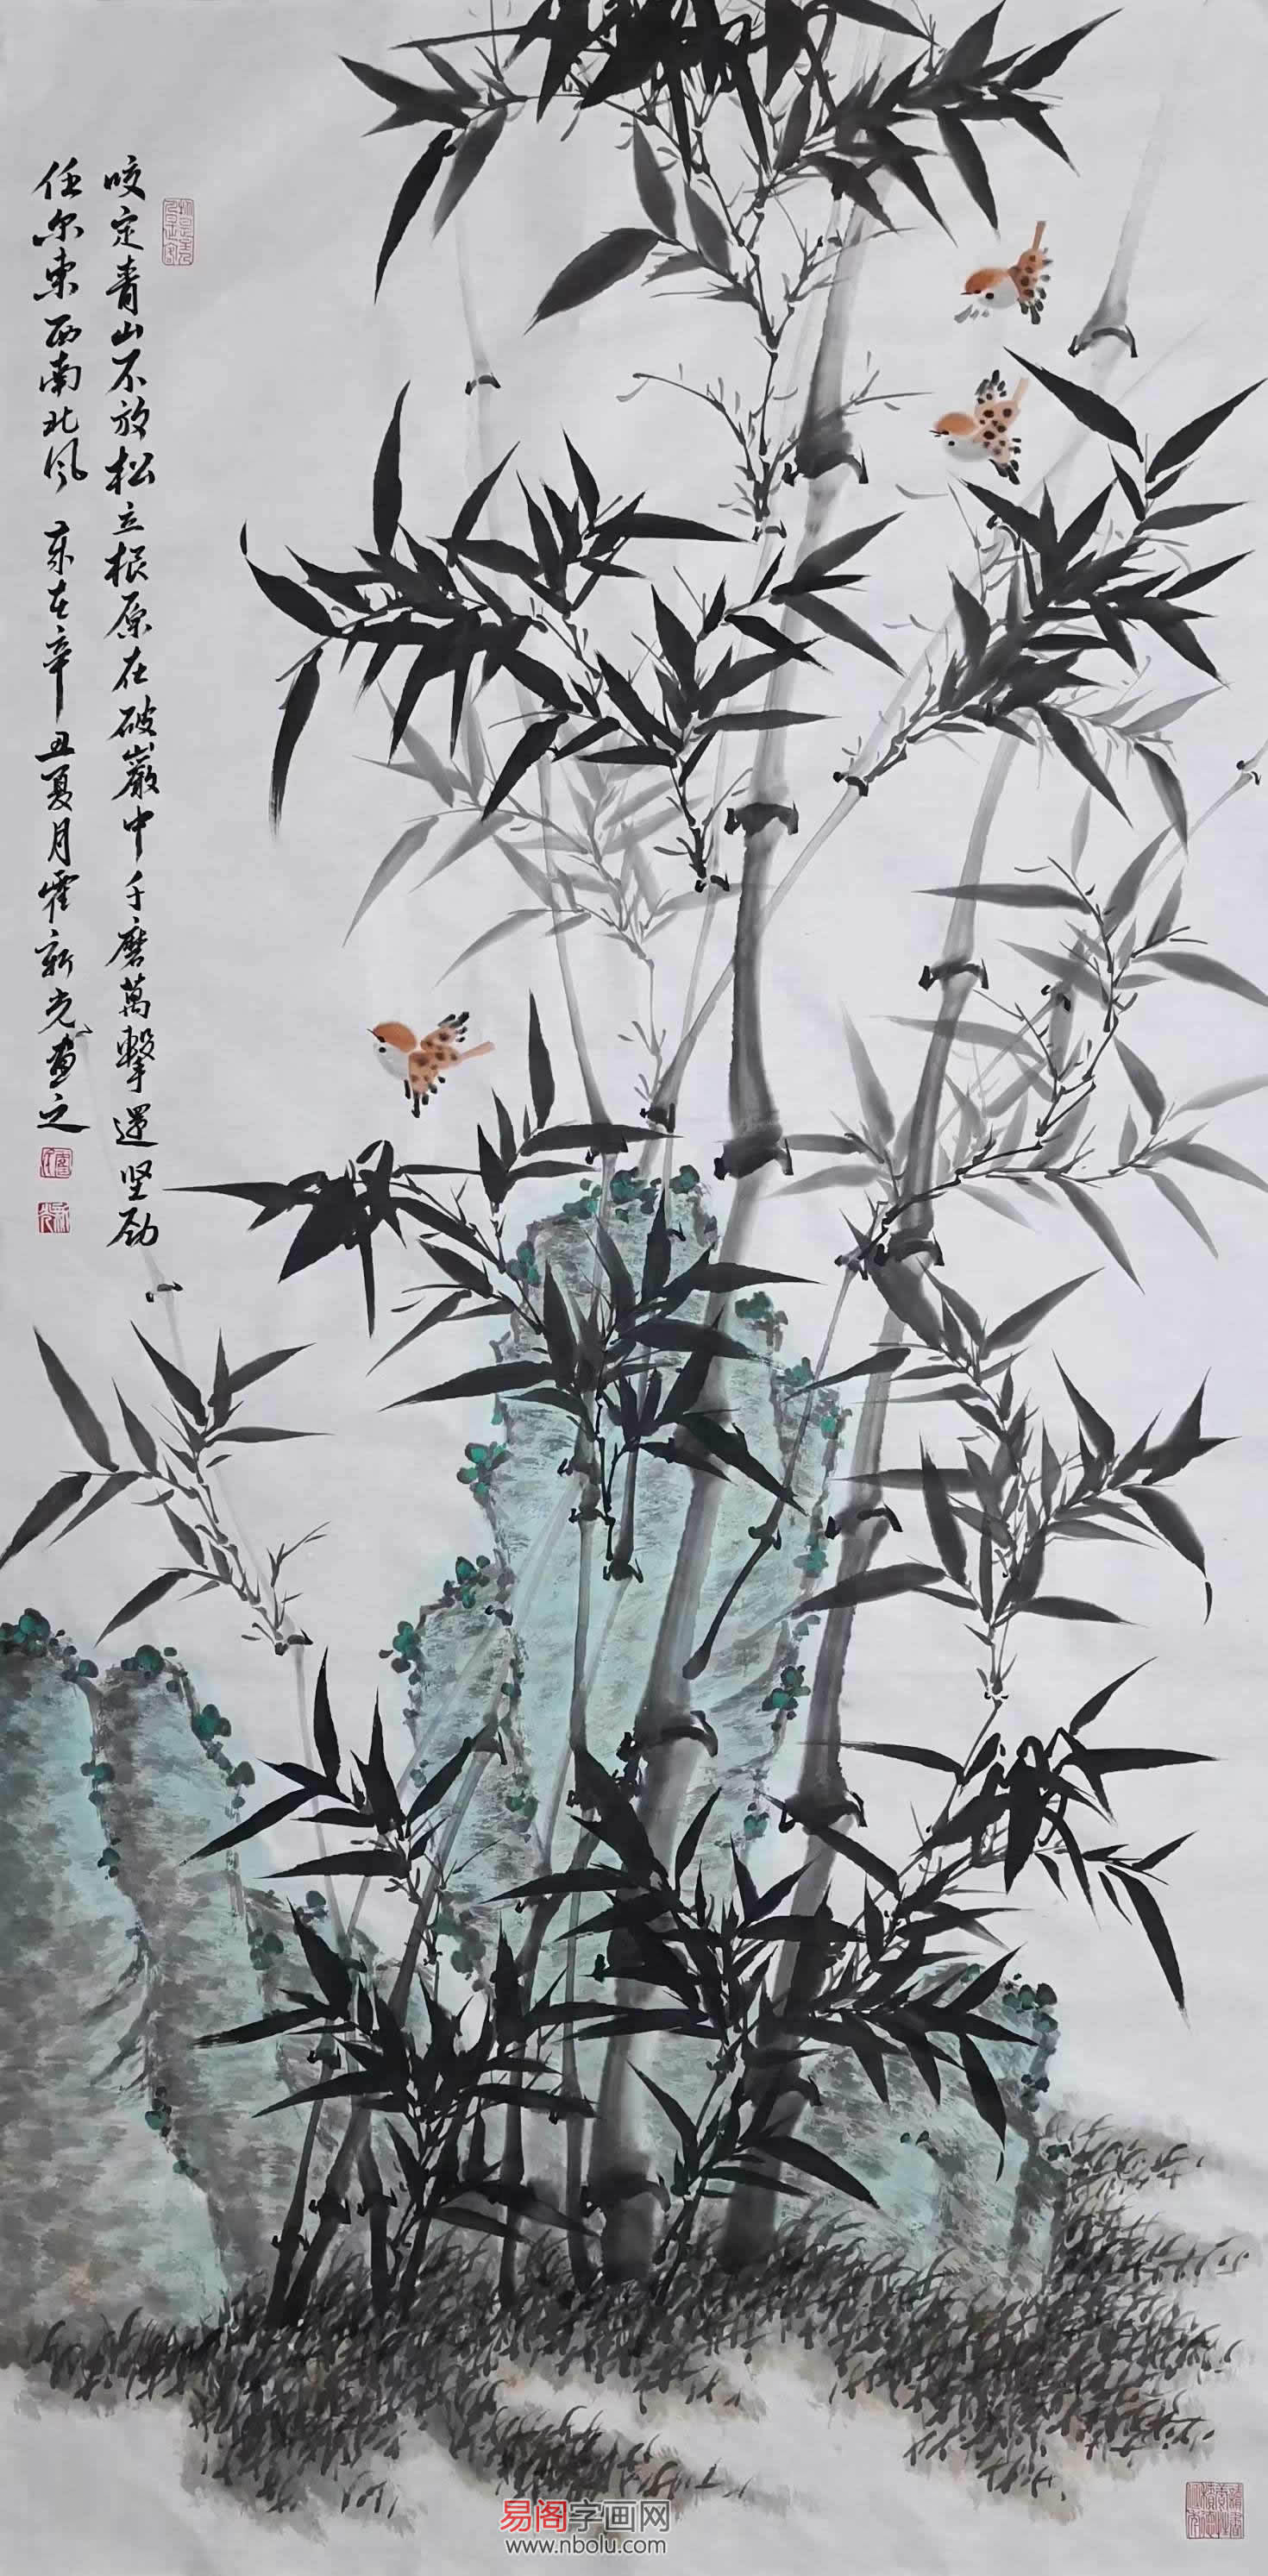 咬定青山不放松立根原在破巖中千磨萬擊還坚劲
任尔东西南北风 歲在辛丑夏月霍新光画之
易阁字画网
www.nbolu.com